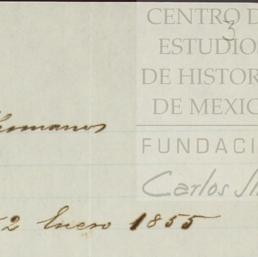 CENTRO D
3
ESTUDIO
DE HISTOR
DE MEXIC
FUNDACI
Carlos Sl
2 Enero 1855